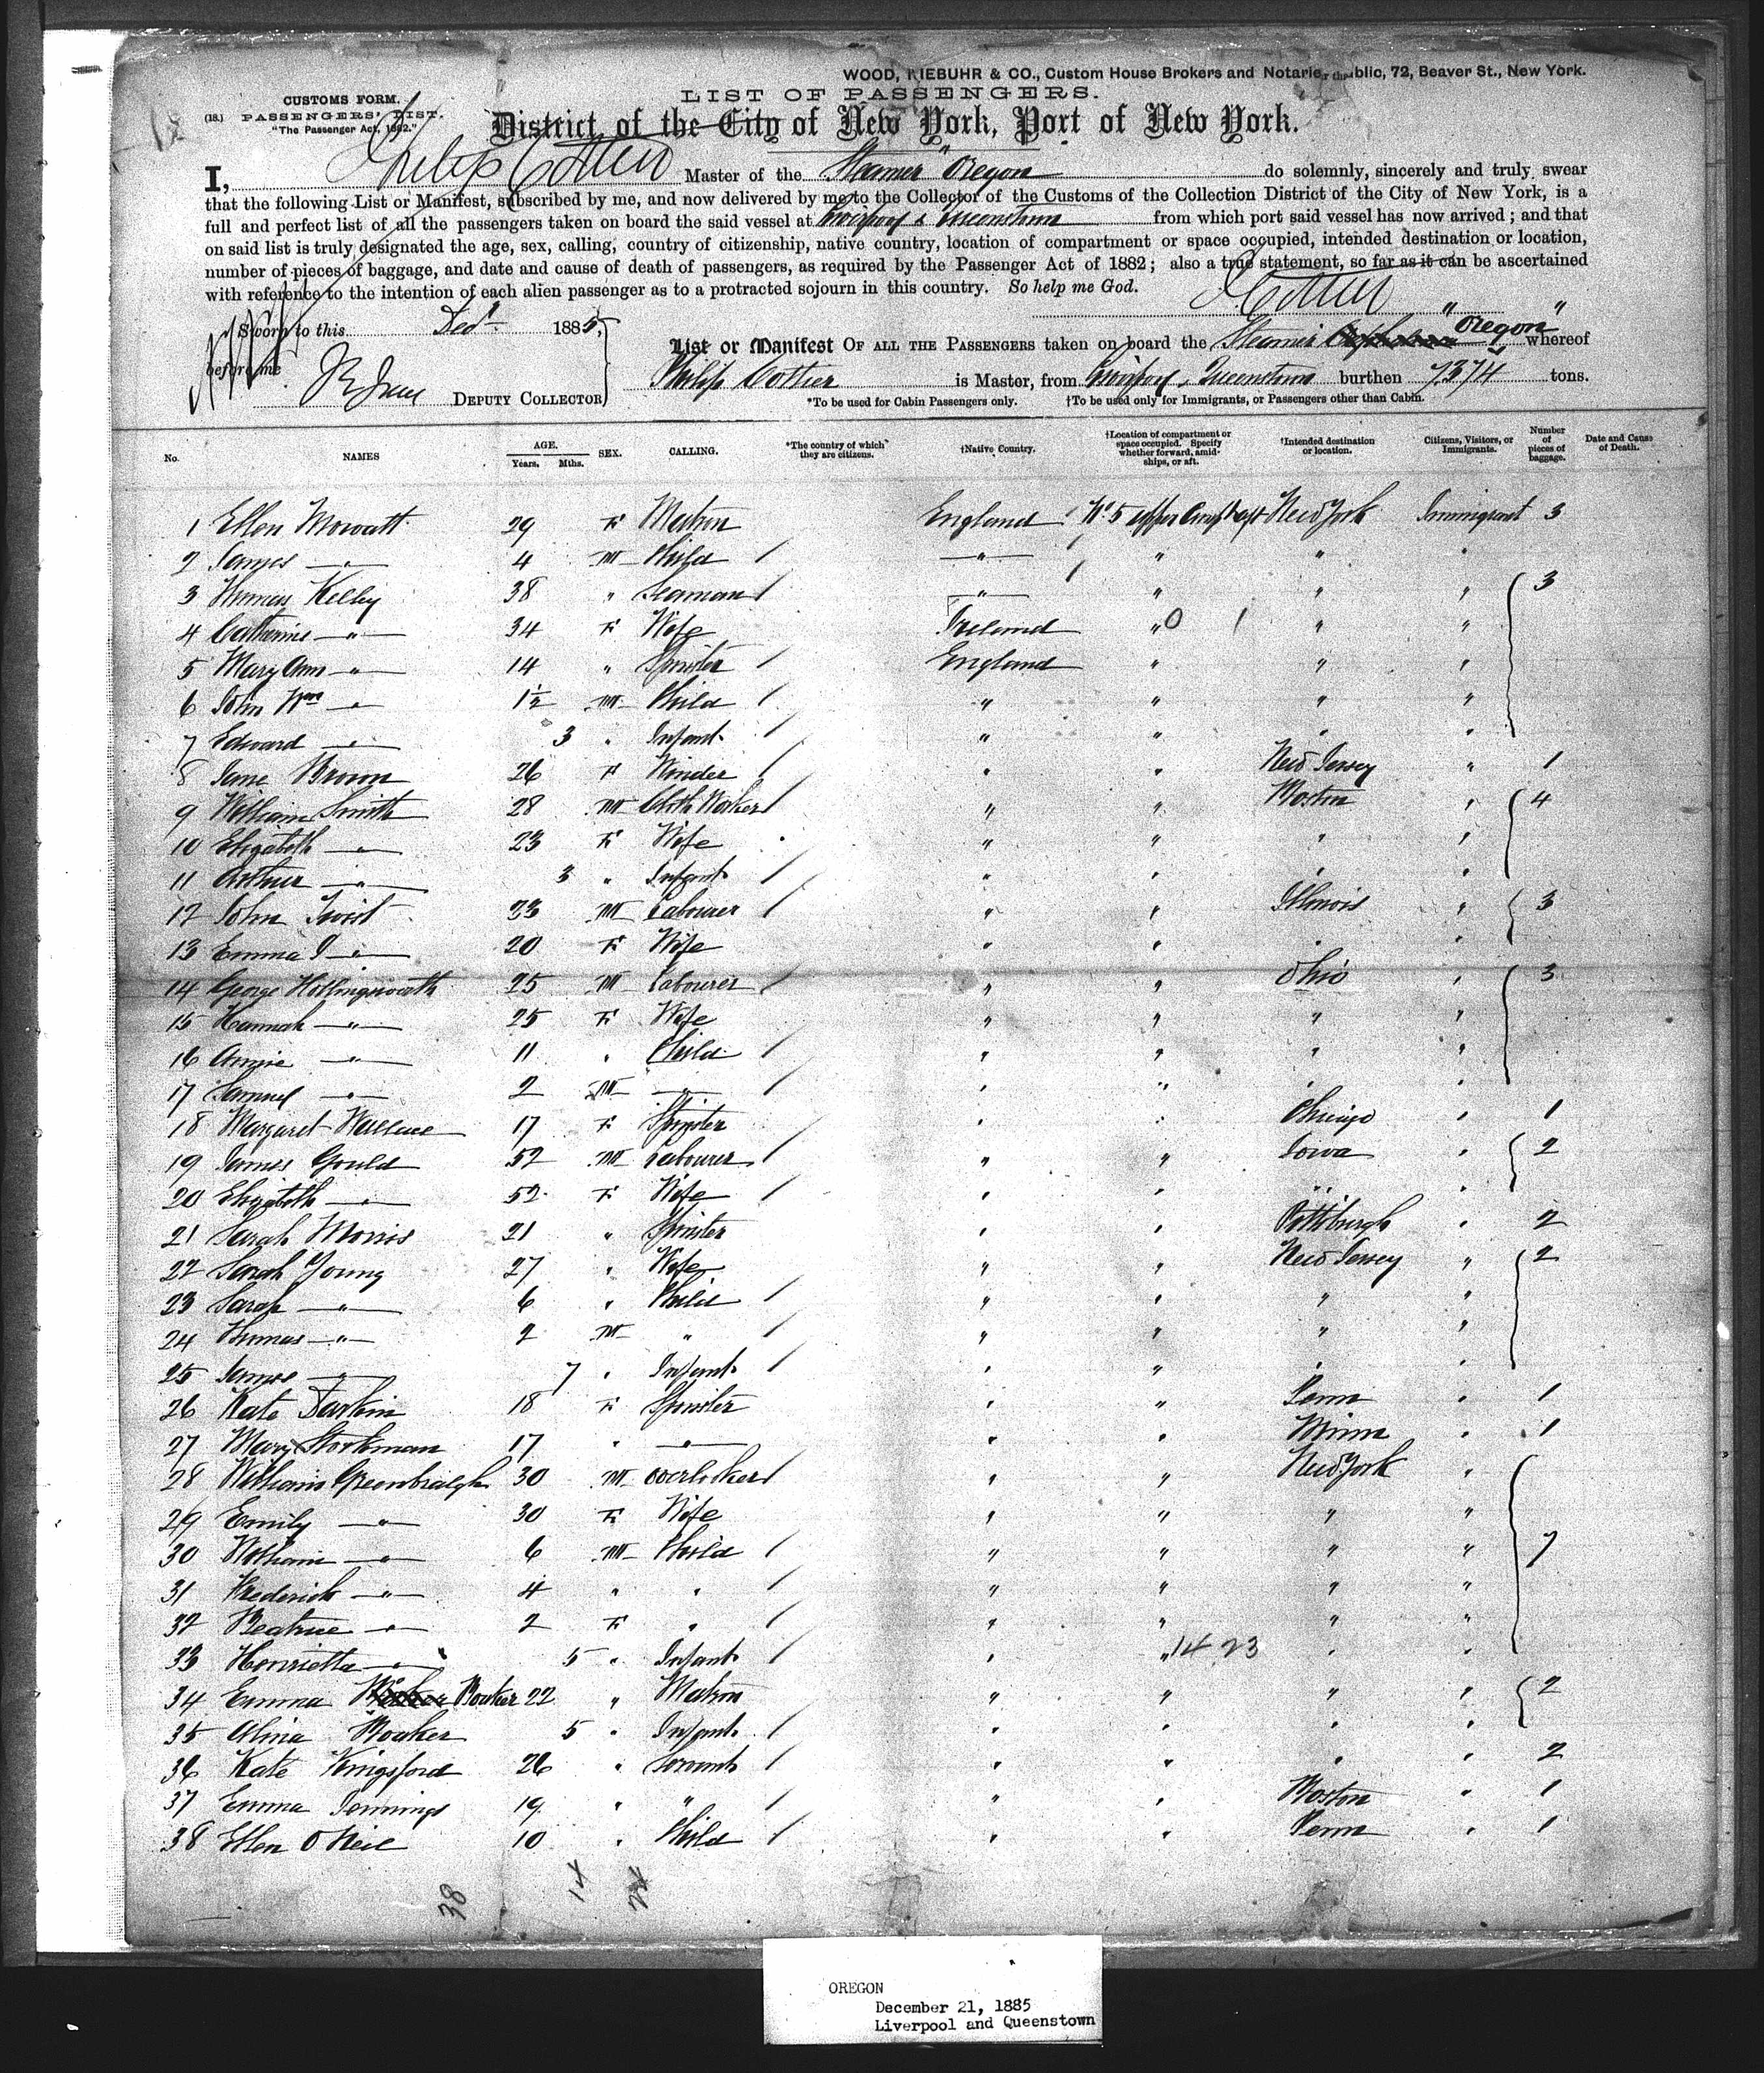 WOOD, NIEBUHR & CO., Custom House Brokers and Notaries Public, 72, Beaver St., New York.
LIST OF PASSENGERS.
CUSTOMS FORM.
(18.) PASSENGERS' LIST.
"The Passenger Act, 1882."
District of the City of New York, Port of New York.
I, Philip Cottier Master of the Steamer "Oregon do solemnly, sincerely and truly swear
that the following List or Manifest, subscribed by me, and now delivered by me to the Collector of the Customs of the Collection District of the City of New York, is a
full and perfect list of all the passengers taken on board the said vessel at Liverpool & Queenstown from which port said vessel has now arrived; and that
on said list is truly designated the age, sex, calling, country of citizenship, native country, location of compartment or space occupied, intended destination or location,
number of pieces of baggage, and date and cause of death of passengers, as required by the Passenger Act of 1882; also a true statement, so far as it can be ascertained
with reference to the intention of each alien passenger as to a protracted sojourn in this country. So help me God.
PCottier
Sworn to this Decr 1885,
before me
DEPUTY COLLECTOR
List or Manifest OF ALL THE PASSENGERS taken on board the Steamer "Oregon" whereof
Philip Cottier is Master, from Liverpool & Queenstown burthen 7374 tons.
*To be used for Cabin Passengers only. †To be used only for Immigrants, or Passengers other than Cabin.
No. NAMES AGE. Years. Mths. SEX. CALLING. *The country of which they are citizens. †Native Country. †Location of compartment or space occupied. Specify whether forward, amidships, or aft. †Intended destination or location. Citizens, Visitors, or Immigrants. Number of pieces of baggage. Date and Cause of Death.
1 Ellen Mowatt 29 F Matron England No. 5 upper aft New York Immigrant 3
2 James " 4 M Child " " " "
3 Thomas Kelly 38 " Seaman " " " " 3
4 Catherine " 34 F Wife Ireland " 0 1 " "
5 Mary Ann " 14 " Spinster England " " "
6 John Wm " 1½ M Child " " " "
7 Edward " 3 " Infant " " " "
8 Jane Brown 26 F Winder " " New Jersey " 1
9 William Smith 28 M Cloth Worker " " Boston " 4
10 Elizabeth " 23 F Wife " " " "
11 Arthur " 3 " Infant " " " "
12 John Twist 23 M Labourer " " Illinois " 3
13 Emma J " 20 F Wife " " " "
14 George Hollingsworth 25 M Labourer " " Ohio " 3
15 Hannah " 25 F Wife " " " "
16 Annie " 11 " Child " " " "
17 Samuel " 2 M " " " " "
18 Margaret Wallace 17 F Spinster " " Chicago " 1
19 James Gould 52 M Labourer " " Iowa " 2
20 Elizabeth " 52 F Wife " " " "
21 Sarah Morris 21 " Spinster " " Pittsburgh " 2
22 Sarah Young 27 " Wife " " New Jersey " 2
23 Sarah " 6 " Child " " " "
24 Thomas " 2 M " " " " "
25 James " 7 " Infant " " " "
26 Kate Darkin 18 F Spinster " " Penn " 1
27 Mary Storkman 17 " " " " Minn " 1
28 William Greenhalgh 30 M Overlooker " " New York "
29 Emily " 30 F Wife " " " "
30 William " 6 M Child " " " " 7
31 Frederick " 4 " " " " " "
32 Beatrice " 2 F " " " " "
33 Henrietta " 5 " Infant " " 14 23 " "
34 Emma Boaker 22 " Matron " " " " 2
35 Alina Boaker 5 " Infant " " " "
36 Kate Kingsford 26 " Servant " " " " 2
37 Emma Jennings 19 " " " " Boston " 1
38 Ellen O Neil 10 " Child " " Penn " 1
38 14 24
OREGON
December 21, 1885
Liverpool and Queenstown